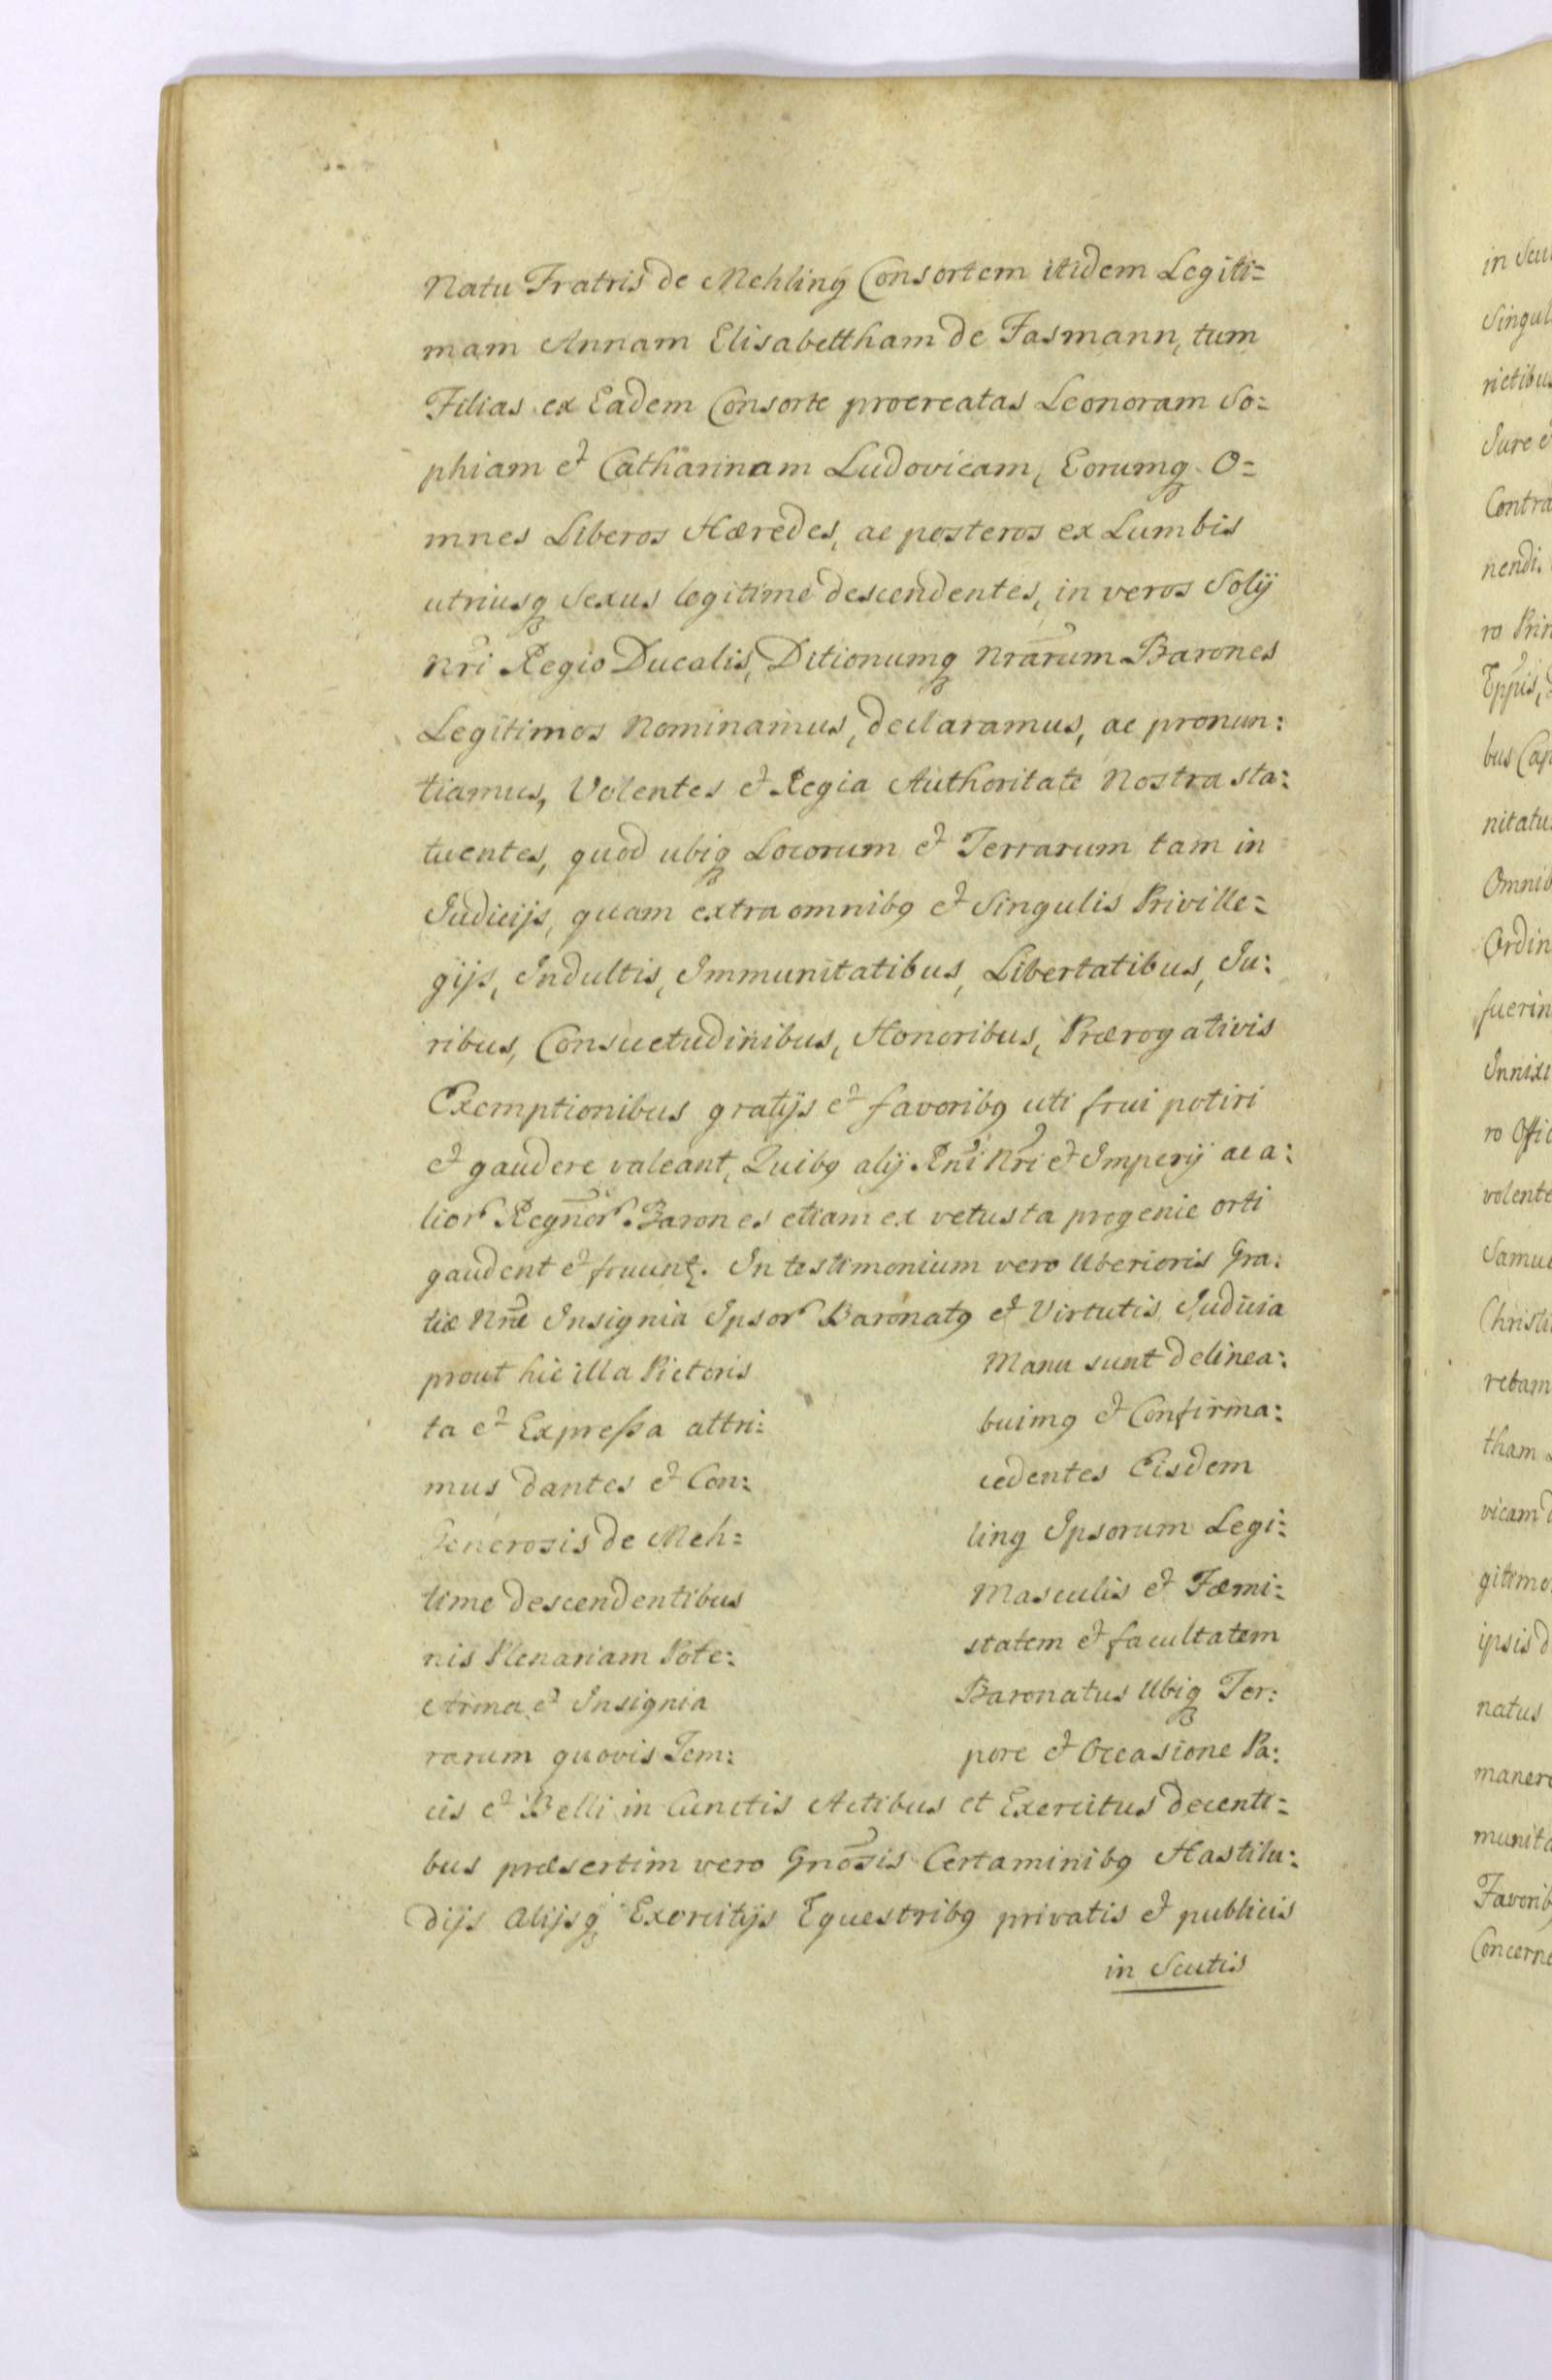 Natu Fratris de Mehling Consortem itidem Legiti=
mam Annam Elisabettham de Fasmann, tum
Filias ex Eadem Consorte procreatas Leonoram So=
phiam et Catharinam Ludovicam, Eorumq O=
mnes Liberos Hæredes, ac posteros ex Lumbis
utriusq Sexus legitime descendentes, in veros Solij
Nri Regio Ducalis, Ditionumq Nrarum Barones
Legitimos Nominamus, declaramus, ac pronun:
tiamus, Volentes et Regia Authoritate Nostra sta:
tuentes, quod ubiq Locorum et Terrarum tam in
Judicijs, quam extra omnibq et Singulis Priville=
gijs, Indultis, Immunitatibus, Libertatibus, Ju:
ribus, Consuetudinibus, Honoribus, Prærogativis
Exemptionibus gratijs et favoribq uti frui potiri
et gaudere valeant, Quibq alij Rni Nri et Imperij ac a:
lior Regnor. Barones etiam ex vetusta progenie orti
gaudent et fruunt. In testimonium vero Uberioris Gra:
tiæ Nræ Insignia Ipsor Baronatq et Virtutis Judicia
prout hic illa Pictoris Manu sunt delinea:
ta et Expressa attri: buimq et Confirma:
mus dantes et Con: cedentes Eisdem
Generosis de Meh= ling Ipsorum Legi:
time descendentibus Masculis et Fæmi:
nis Plenariam Pote: statem et facultatem
Arma et Insignia Baronatus Ubiq Ter:
rarum quovis Tem: pore et Occasione Pa:
cis et Belli in Cunctis Actibus et Exercitus decenti=
bus præsertim vero Gnosis Certaminibq Hastilu:
dijs Alijsq Exercitijs Equestribq privatis et publicis
in Scutis
in Scu
Singul
rictibus
Jure e
Contra
nendi.
ro Prin
Eppis,
bus Cap
nitatu
Omnib
Ordin
fuerin
Innixi
ro Offic
volente
Samue
Christi
retam
tham
vicam d
gitimo
ipsis d
natus
manere
munita
Favorib
Concerne